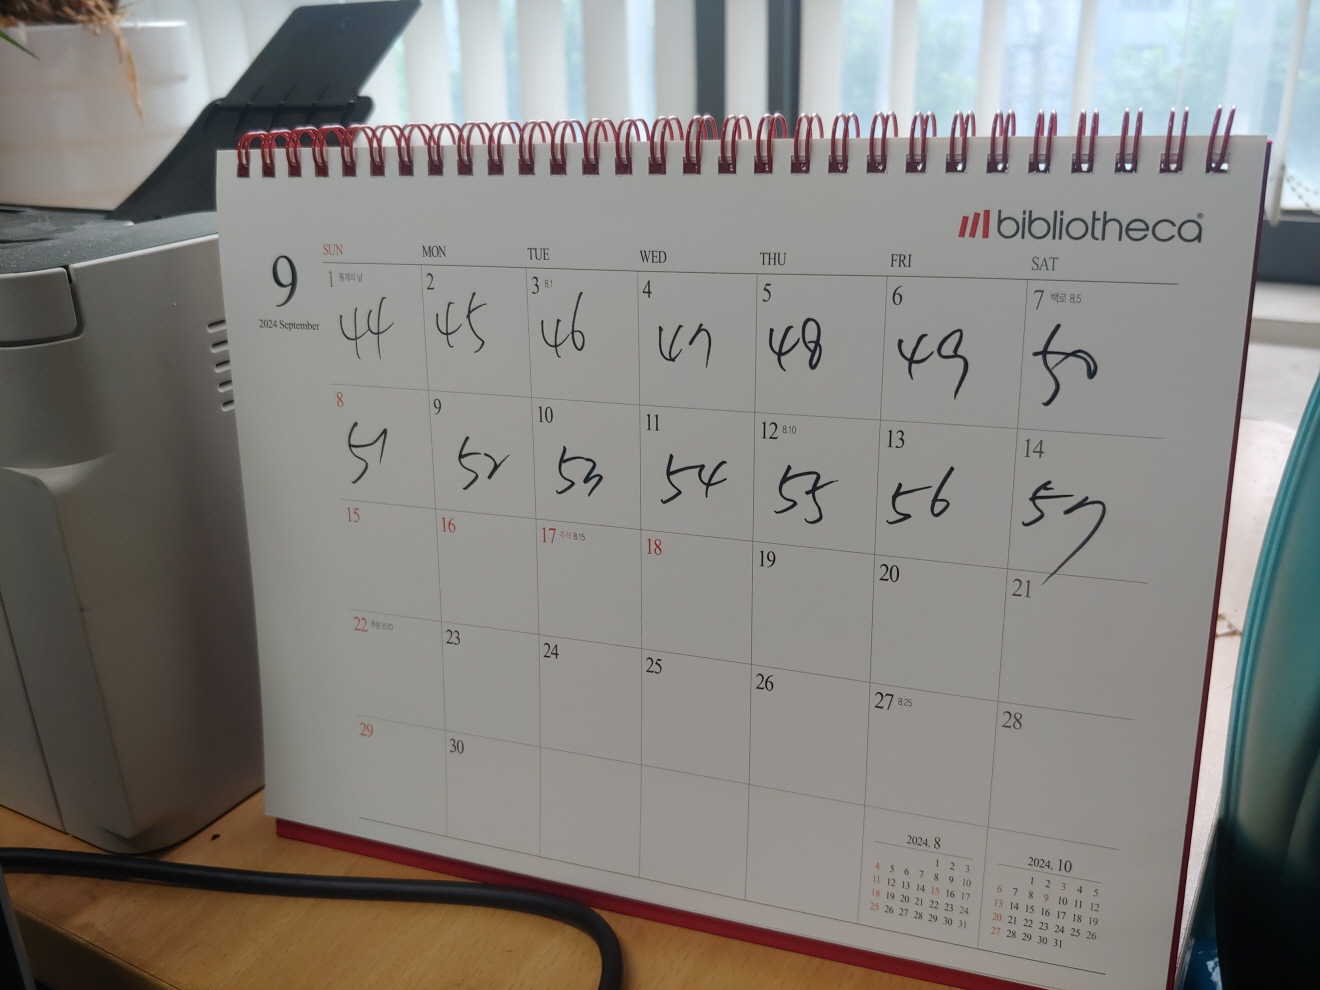 bibliotheca
9
2024 September
SUN MON TUE WED THU FRI SAT
1 통계의 날 2 3 8.1 4 5 6 7 백로 8.5
44 45 46 47 48 49 50
8 9 10 11 12 8.10 13 14
51 52 53 54 55 56 57
15 16 17 추석 8.15 18 19 20 21
22 추분 8.20 23 24 25 26 27 8.25 28
29 30
2024. 8
1 2 3
4 5 6 7 8 9 10
11 12 13 14 15 16 17
18 19 20 21 22 23 24
25 26 27 28 29 30 31
2024. 10
1 2 3 4 5
6 7 8 9 10 11 12
13 14 15 16 17 18 19
20 21 22 23 24 25 26
27 28 29 30 31